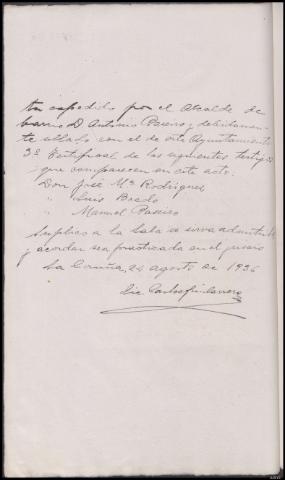 to expedido por el Alcalde de
barrio D. Antonio Paseiro y debidamen-
te sellado con el de este Ayuntamiento
3º Testifical de los siguientes testigos
que comparecen en este acto:
Don José Mª Rodríguez
" Luis Prado
" Manuel Paseiro
Suplico a la Sala se sirva admitirla
y acordar sea practicada en el juicio
La Coruña, 24 agosto de 1936
Lic Carlos